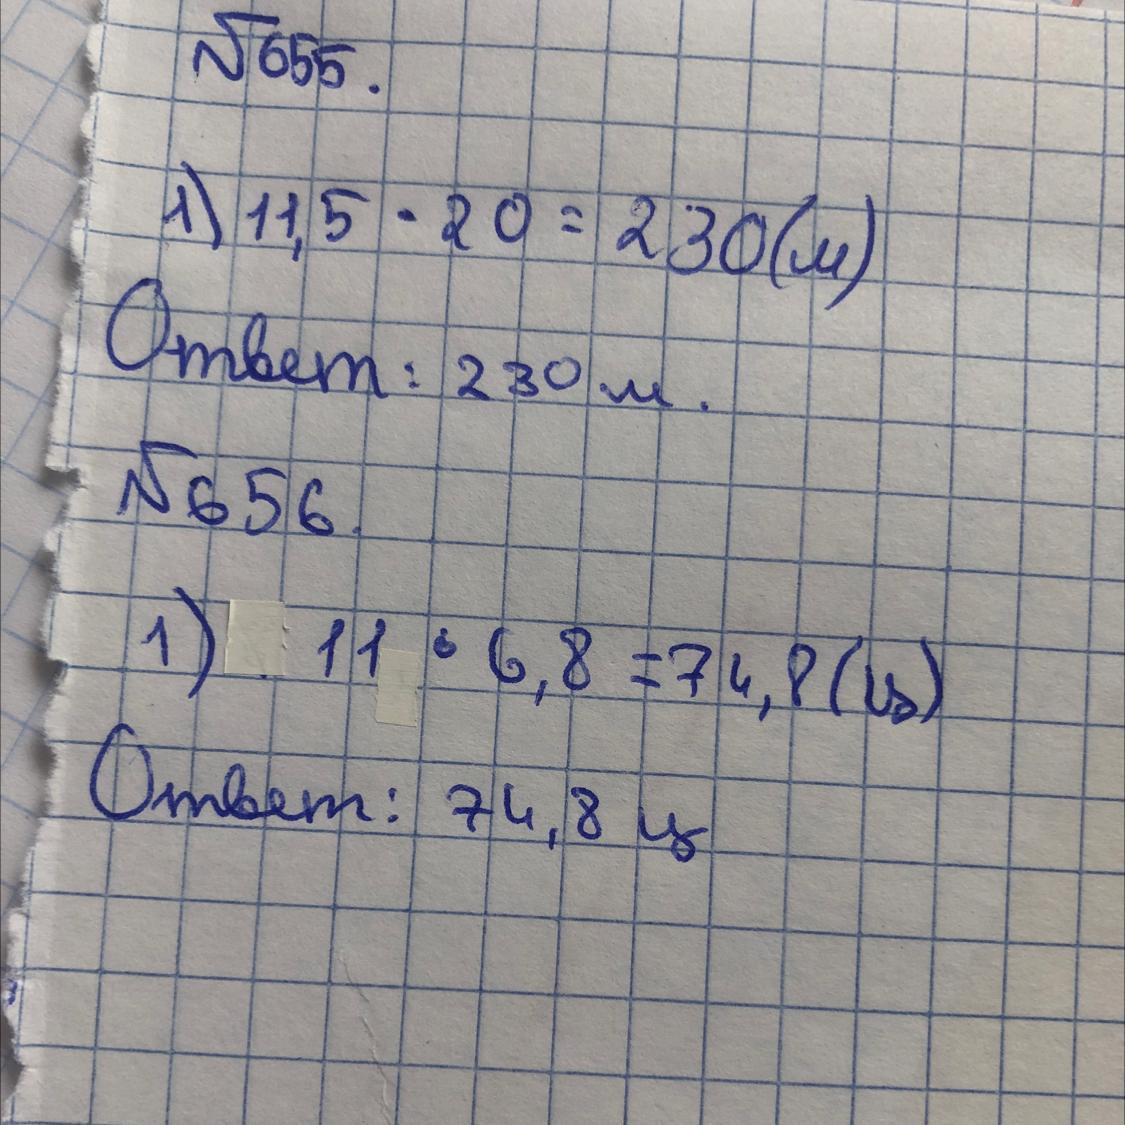 №655.
1) 11,5 · 20 = 230(м)
Ответ: 230 м.
№656.
1) 11 · 6,8 = 74,8(ц)
Ответ: 74,8 ц